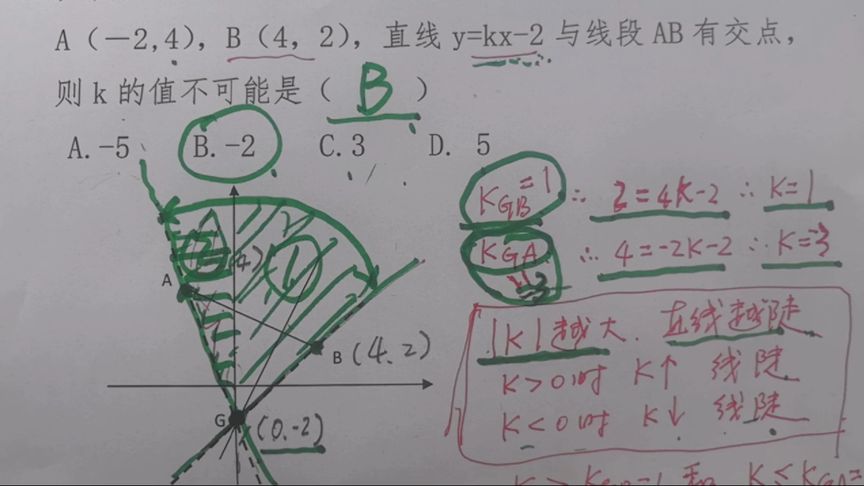 A（－2,4），B（4，2），直线 y=kx-2 与线段 AB 有交点，
则 k 的值不可能是（ B ）
A.-5 B.-2 C.3 D. 5
K_GB=1 ∴ 2=4K-2 ∴ K=1
K_GA ∴ 4=-2K-2 ∴ K=-3
-3
|K|越大.直线越陡
K>0时 K↑ 线陡
K<0时 K↓ 线陡
①
A
B (4,2)
G (0.-2)